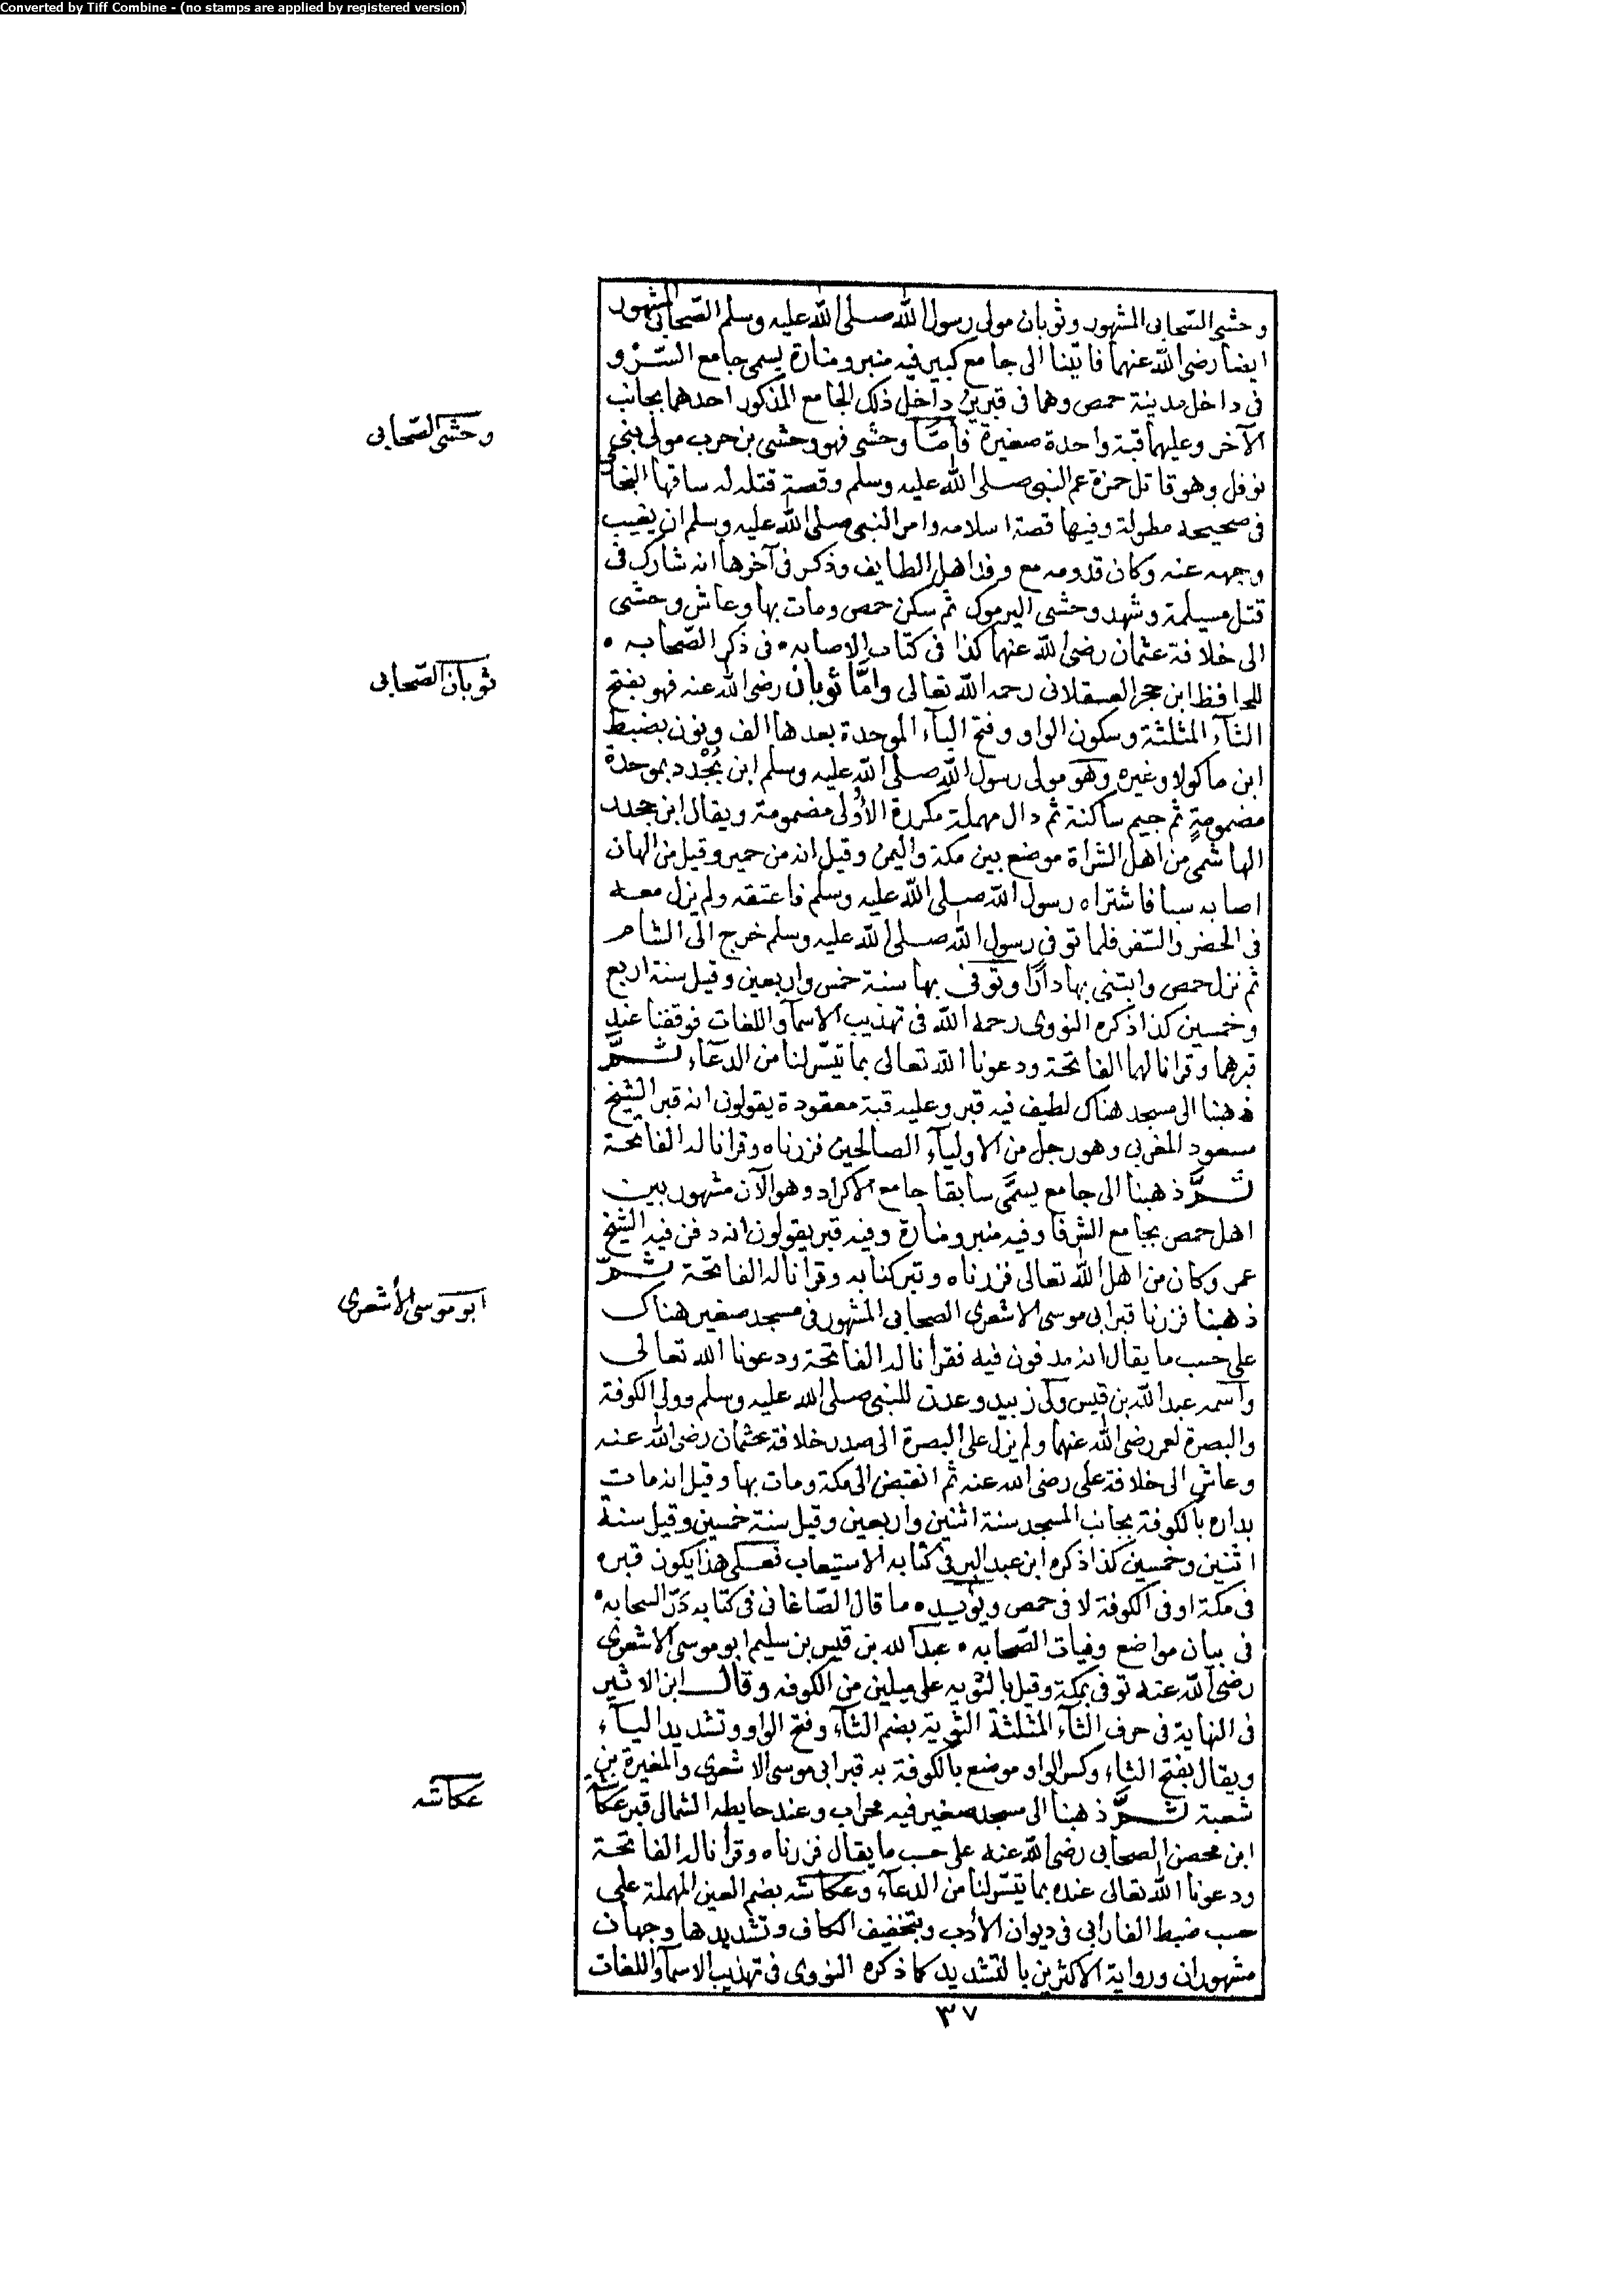 Converted by Tiff Combine - (no stamps are applied by registered version)
وحشى الصّحابى المشهور وثوبان مولى رسول الله صلى الله عليه وسلم الصّحابى المشهور
ايضا رضى الله عنهما فاتينا الى جامع كبير فيه منبر ومنارة يسمى جامع السّرو
فى داخل مدينة حمص وهما فى قبرين داخل ذلك الجامع المذكور احدهما بجانب
الآخر وعليهما قبة واحدة صغيرة فأمّا وحشى فهو وحشى بن حرب مولى بنى
وحشى الصّحابى
نوفل وهو قاتل حمزة عم النبى صلى الله عليه وسلم وقصة قتله له ساقها البخارى
فى صحيحه مطولة وفيها قصة اسلامه وامر النبى صلى الله عليه وسلم ان يغيب
وجهه عنه وكان قدومه مع وفد اهل الطايف وذكر فى آخرها انه شارك فى
قتل مسيلمة وشهد وحشى اليرموك ثم سكن حمص ومات بها وعاش وحشى
الى خلافة عثمان رضى الله عنهما كذا فى كتاب الاصابه فى ذكر الصّحابه
للحافظ ابن حجر العسقلانى رحمه الله تعالى وأمّا ثوبان رضى الله عنه فهو بفتح
ثوبان الصّحابى
الثآء المثلثة وسكون الواو وفتح البآء الموحدة بعدها الف ونون بضبط
ابن ماكولا وغيره وهو مولى رسول الله صلى الله عليه وسلم ابن بُجْدد بموحدة
مضمومةٍ ثم جيم ساكنة ثم دال مهملة مكررة الأولى مضمومة ويقال ابن جحدر
الهاشمى من اهل الشراة موضع بين مكة واليمن وقيل انه من حمير وقيل من الهان
اصابه سبا فاشتراه رسول الله صلى الله عليه وسلم فاعتقه ولم يزل معه
فى الحضر والسّفر فلما توفى رسول الله صلى الله عليه وسلم خرج الى الشام
ثم نزل حمص وابتنى بها دارًا وتوفى بها سنة خمس واربعين وقيل سنة اربع
وخمسين كذا ذكره النووى رحمه الله فى تهذيب الاسمآ واللغات فوقفنا عند
قبرهما وقرانا لهما الفاتحة ودعونا الله تعالى بما تيسّر لنا من الدعآء ثمّ
ذهبنا الى مسجد هناك لطيف فيه قبر وعليه قبة معقودة يقولون انه قبر الشيخ
مسعود المغربى وهو رجل من الاوليآء الصالحين فزرناه وقرانا له الفاتحة
ثمّ ذهبنا الى جامع يسمّى سابقا جامع الاكراد وهو الآن مشهور بين
اهل حمص بجامع الشرفا وفيه منبر ومنارة وفيه قبر يقولون انه دفن فيه الشيخ
عمر وكان من اهل الله تعالى فزرناه وتبركنا به وقرانا له الفاتحة ثمّ
ذهبنا فزرنا قبر ابى موسى الاشعرى الصحابى المشهور فى مسجد صغير هناك
ابو موسى الأشعرى
على حسب ما يقال انه مدفون فيه فقرأنا له الفاتحة ودعونا الله تعالى
وآسمه عبد الله بن قيس ولى زبيد وعدن للنبى صلى الله عليه وسلم وولى الكوفة
والبصرة لعمر رضى الله عنهما ولم يزل على البصرة الى صدر خلافة عثمان رضى الله عنه
وعاش الى خلافة على رضى الله عنه ثم انقبض الى مكة ومات بها وقيل انه مات
بداره بالكوفة بجانب المسجد سنة اثنين واربعين وقيل سنة خمسين وقيل سنة
اثنين وخمسين كذا ذكره ابن عبد البر فى كتابه الاستيعاب فعلى هذا يكون قبره
فى مكة او فى الكوفة لا فى حمص ويؤيده ما قال الصّاغانى فى كتابه دَرّ السحابه
فى بيان مواضع وفيات الصّحابه عبد الله بن قيس بن سليم ابو موسى الاشعرى
رضى الله عنه توفى بمكة وقيل بالثويه على ميلين من الكوفه وقال ابن الاثير
فى النهاية فى حرف الثآء المثلثة الثوية بضم الثآء وفتح الواو وتشديد اليآء
ويقال بفتح الثاء وكسر الواو موضع بالكوفة به قبر ابى موسى الاشعرى والمغيرة بن
شعبة ثمّ ذهبنا الى مسجد صغير فيه محراب وعند حايطه الشمالى قبر عكاشة
عكاشه
ابن محصن الصحابى رضى الله عنه على حسب ما يقال فزرناه وقرأنا له الفاتحة
ودعونا الله تعالى عنده بما تيسّر لنا من الدعآء وعكاشه بضم العين المهملة على
حسب ضبط الفارابى فى ديوان الأدب وبتخفيف الكاف وتشديدها وجهان
مشهوران ورواية الاكثرين بالتشديد كما ذكره النووى فى تهذيب الاسمآ واللغات
٣٧